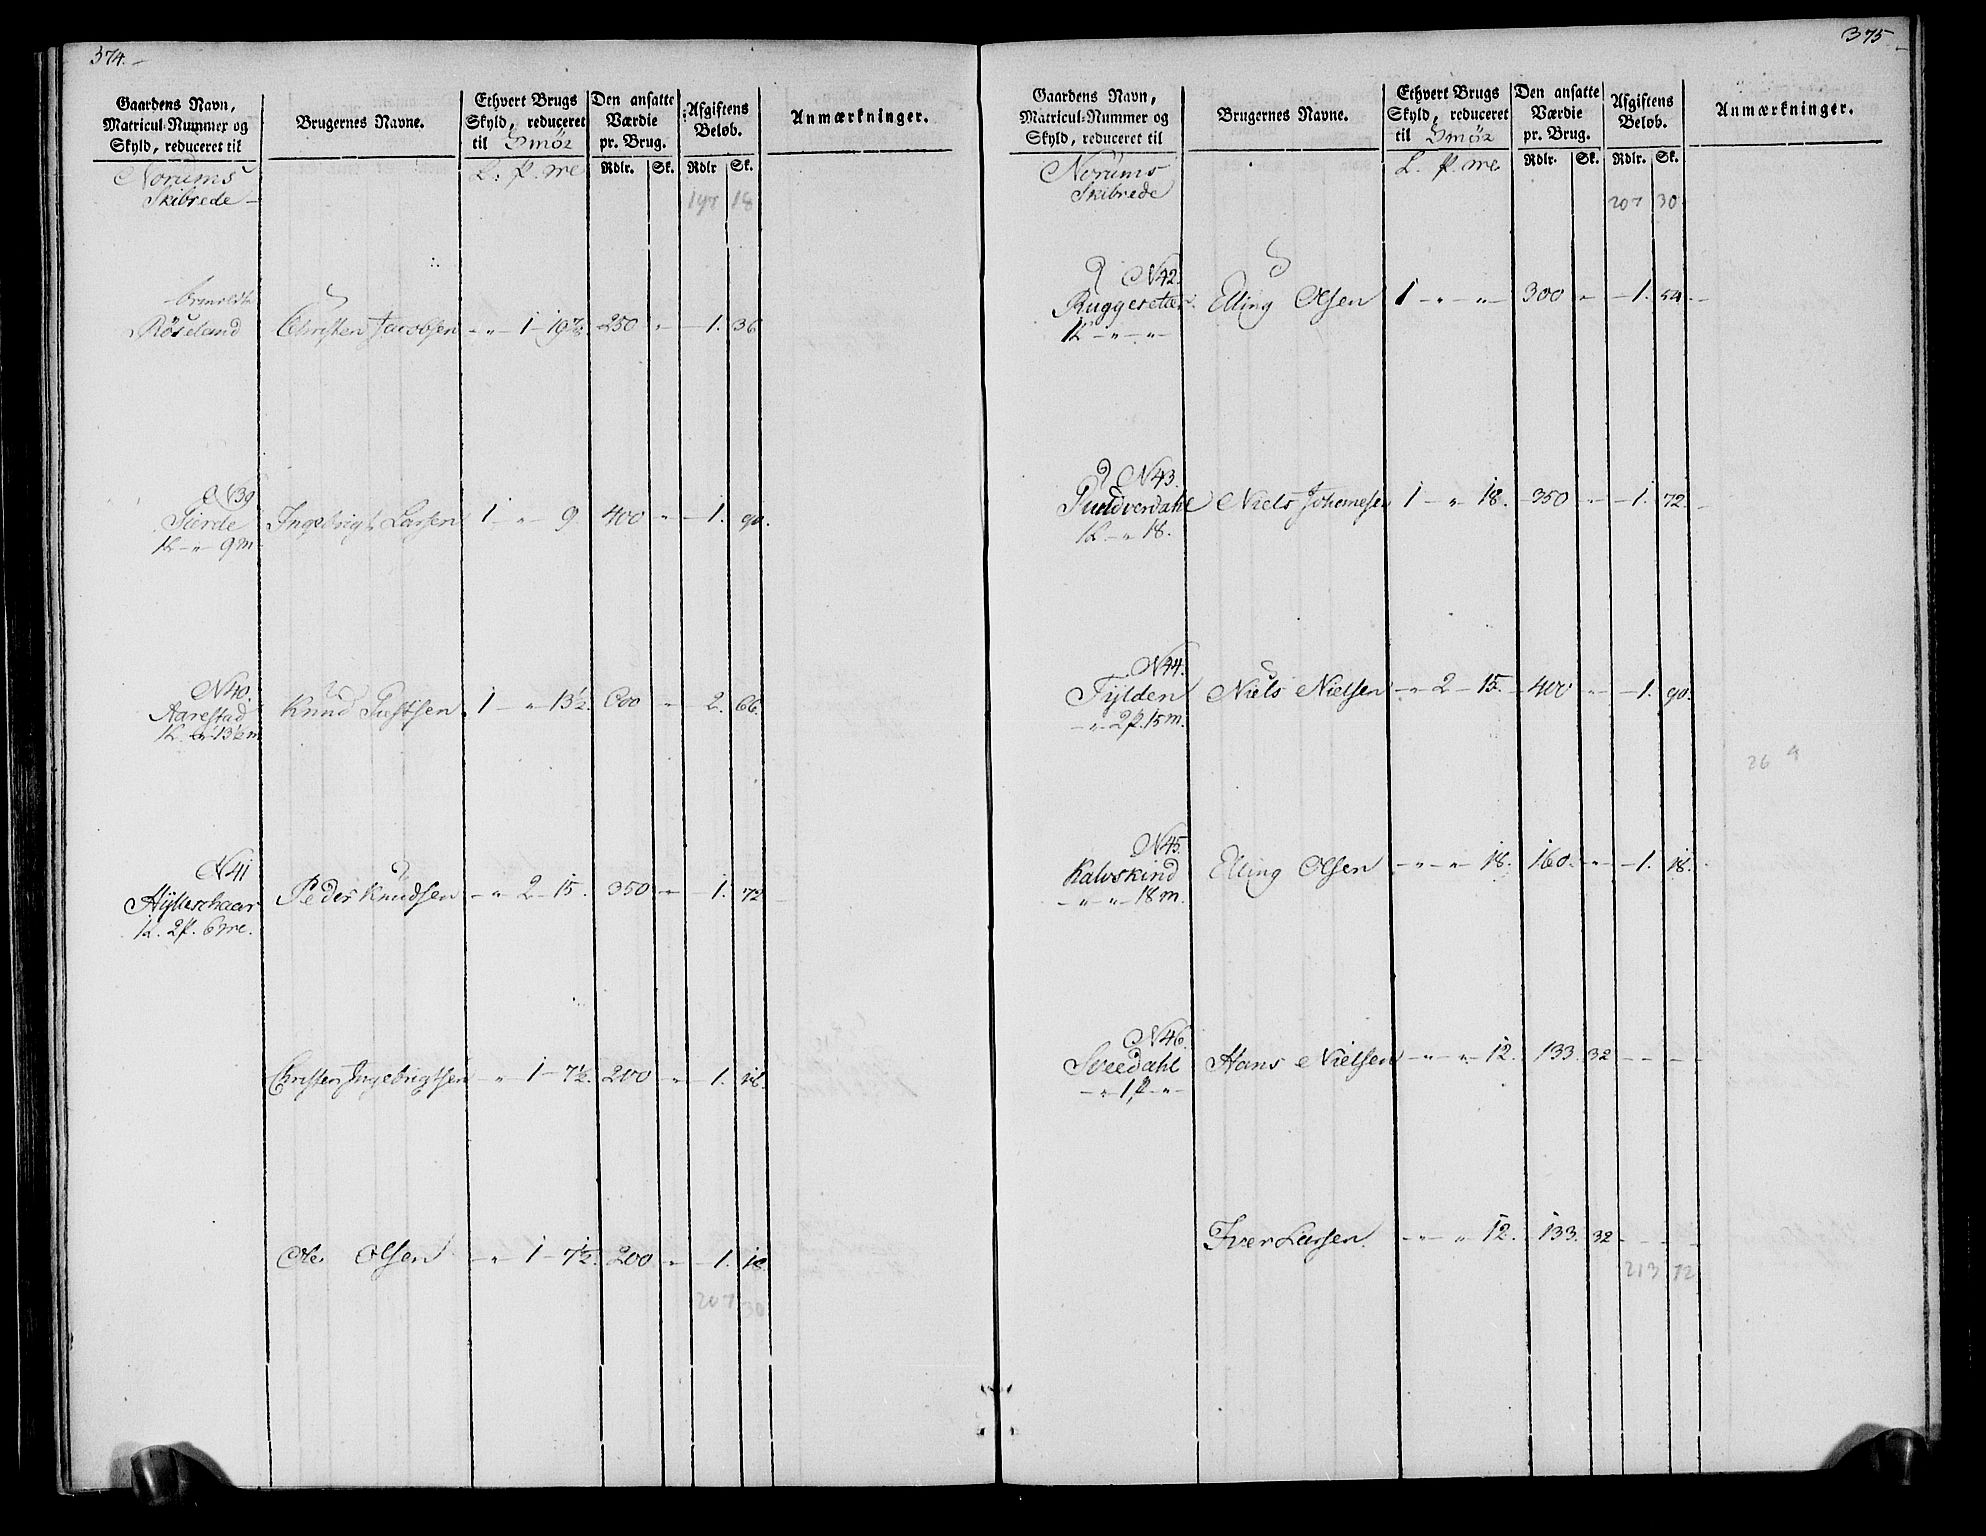 374.
Gaardens Navn, Matricul-Nummer og Skyld, reduceret til
Brugernes Navne.
Ethvert Brugs Skyld, reduceret til Smör
Den ansatte Værdie pr. Brug.
Afgiftens Beløb.
Anmærkninger.
Norums Skibrede
L. p. me
Rdlr. Sk. Rdlr Sk.
197 18
Röseland Christen Jacobsen - " 1 - 19½ 250 " - 1. 36
N39
Tierde Ingebrigt Larsen 1 - " - 9. 400 " - 1. 90.
1L - " - 9m
N40.
Aarestad Knud Justsen 1 - " 13½. 600 " - 2. 66.
1L. " 13½m
N41
Hylleschaar Peder Knudsen - " 2 - 15. 350 " - 1. 72
1L. 2p. 6me.
Christen Ingebrigtsen - " 1 - 7½. 200 " - 1. 18.
Ole Olsen - " 1 - 7½. 200 " - 1. 18
207 30
375
Gaardens Navn, Matricul-Nummer og Skyld, reduceret til
Brugernes Navne.
Ethvert Brugs Skyld, reduceret til Smör
Den ansatte Værdie pr. Brug.
Afgiftens Beløb.
Anmærkninger.
Norums Skibrede
L. p. me
Rdlr. Sk. Rdlr. Sk.
207 30
N42.
Ruggesetter Elling Olsen 1 - " - " 300 " - 1. 54
1L - " - "
N43.
Tundverdahl Niels Johannesen 1 - " 18. 350 " - 1. 72.
1L. - " 18.
N44.
Tylden Niels Nielsen - " 2 - 15. 400 " - 1. 90.
- " 2p. 15m.
26 9
N45.
Kalvskind Elling Olsen - " - " 18. 160. " - 1. 18.
- " - " 18m.
N46.
Sveedahl Hans Nielsen - " - " 12. 133. 32 - - -
- " 1p. "
Iver Larsen. - " - " 12. 133. 32 - - -
213 72